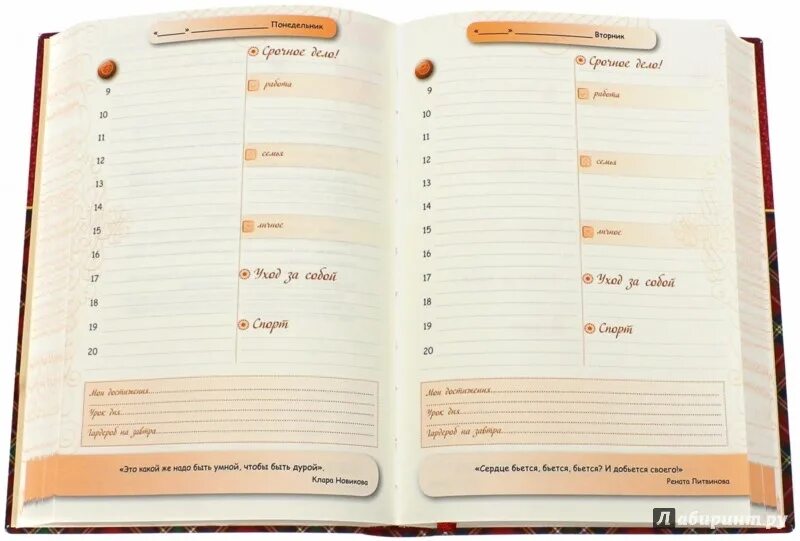 «____» ______________ Понедельник
Срочное дело!
9
работа
10
11
12
семья
13
14
15
личное
16
17
Уход за собой
18
19
Спорт
20
Мои достижения
Урок дня
Гардероб на завтра
«Это какой же надо быть умной, чтобы быть дурой».
Клара Новикова
«____» ______________ Вторник
Срочное дело!
9
работа
10
11
12
семья
13
14
15
личное
16
17
Уход за собой
18
19
Спорт
20
Мои достижения
Урок дня
Гардероб на завтра
«Сердце бьется, бьется, бьется? И добьется своего!»
Рената Литвинова
Лабиринт.ру